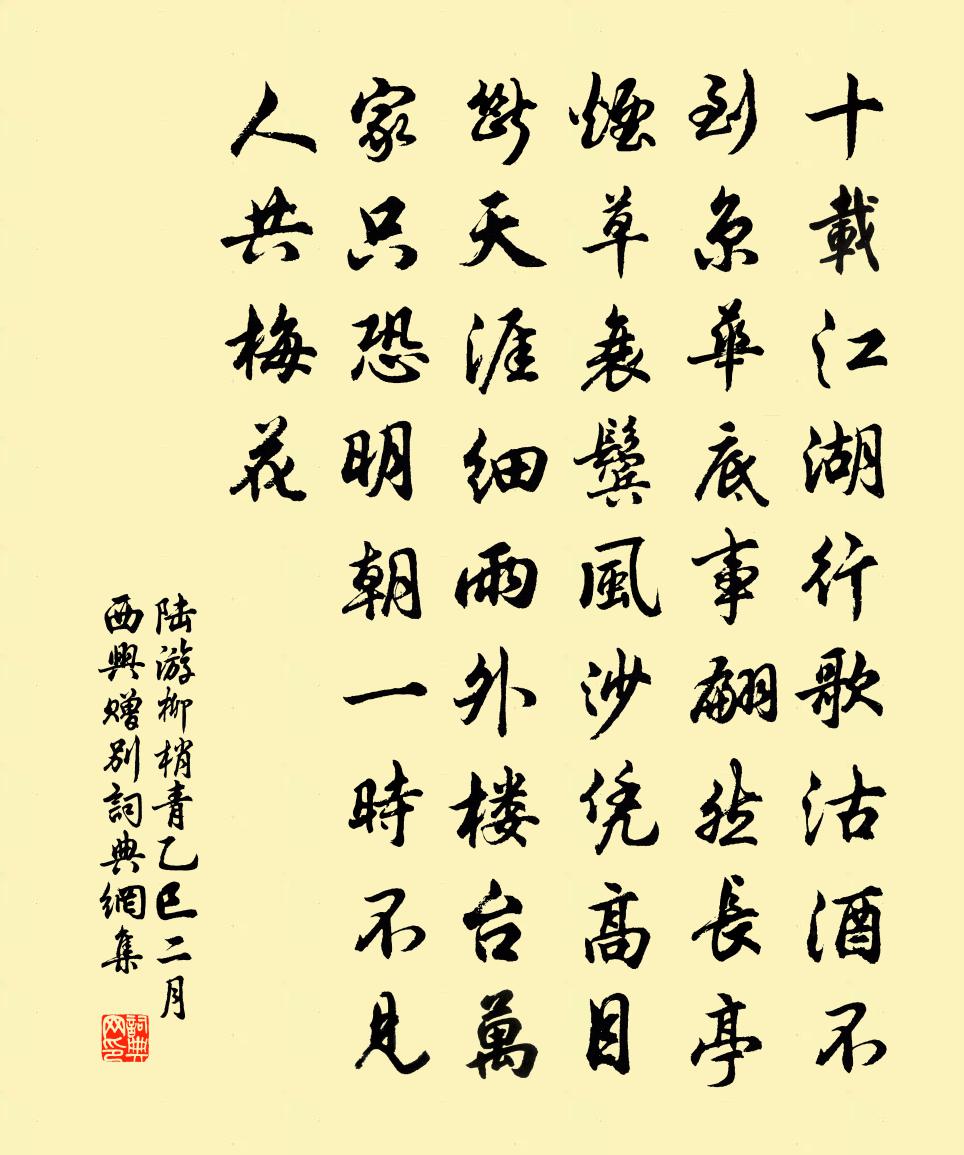 十載江湖行歌沽酒不
到京華底事翩然長亭
煙草衰鬢風沙凭高目
斷天涯細雨外楼台萬
家只恐明朝一時不見
人共梅花
陸游柳梢青乙巳二月
西興贈別詞典網集
詞典
网印